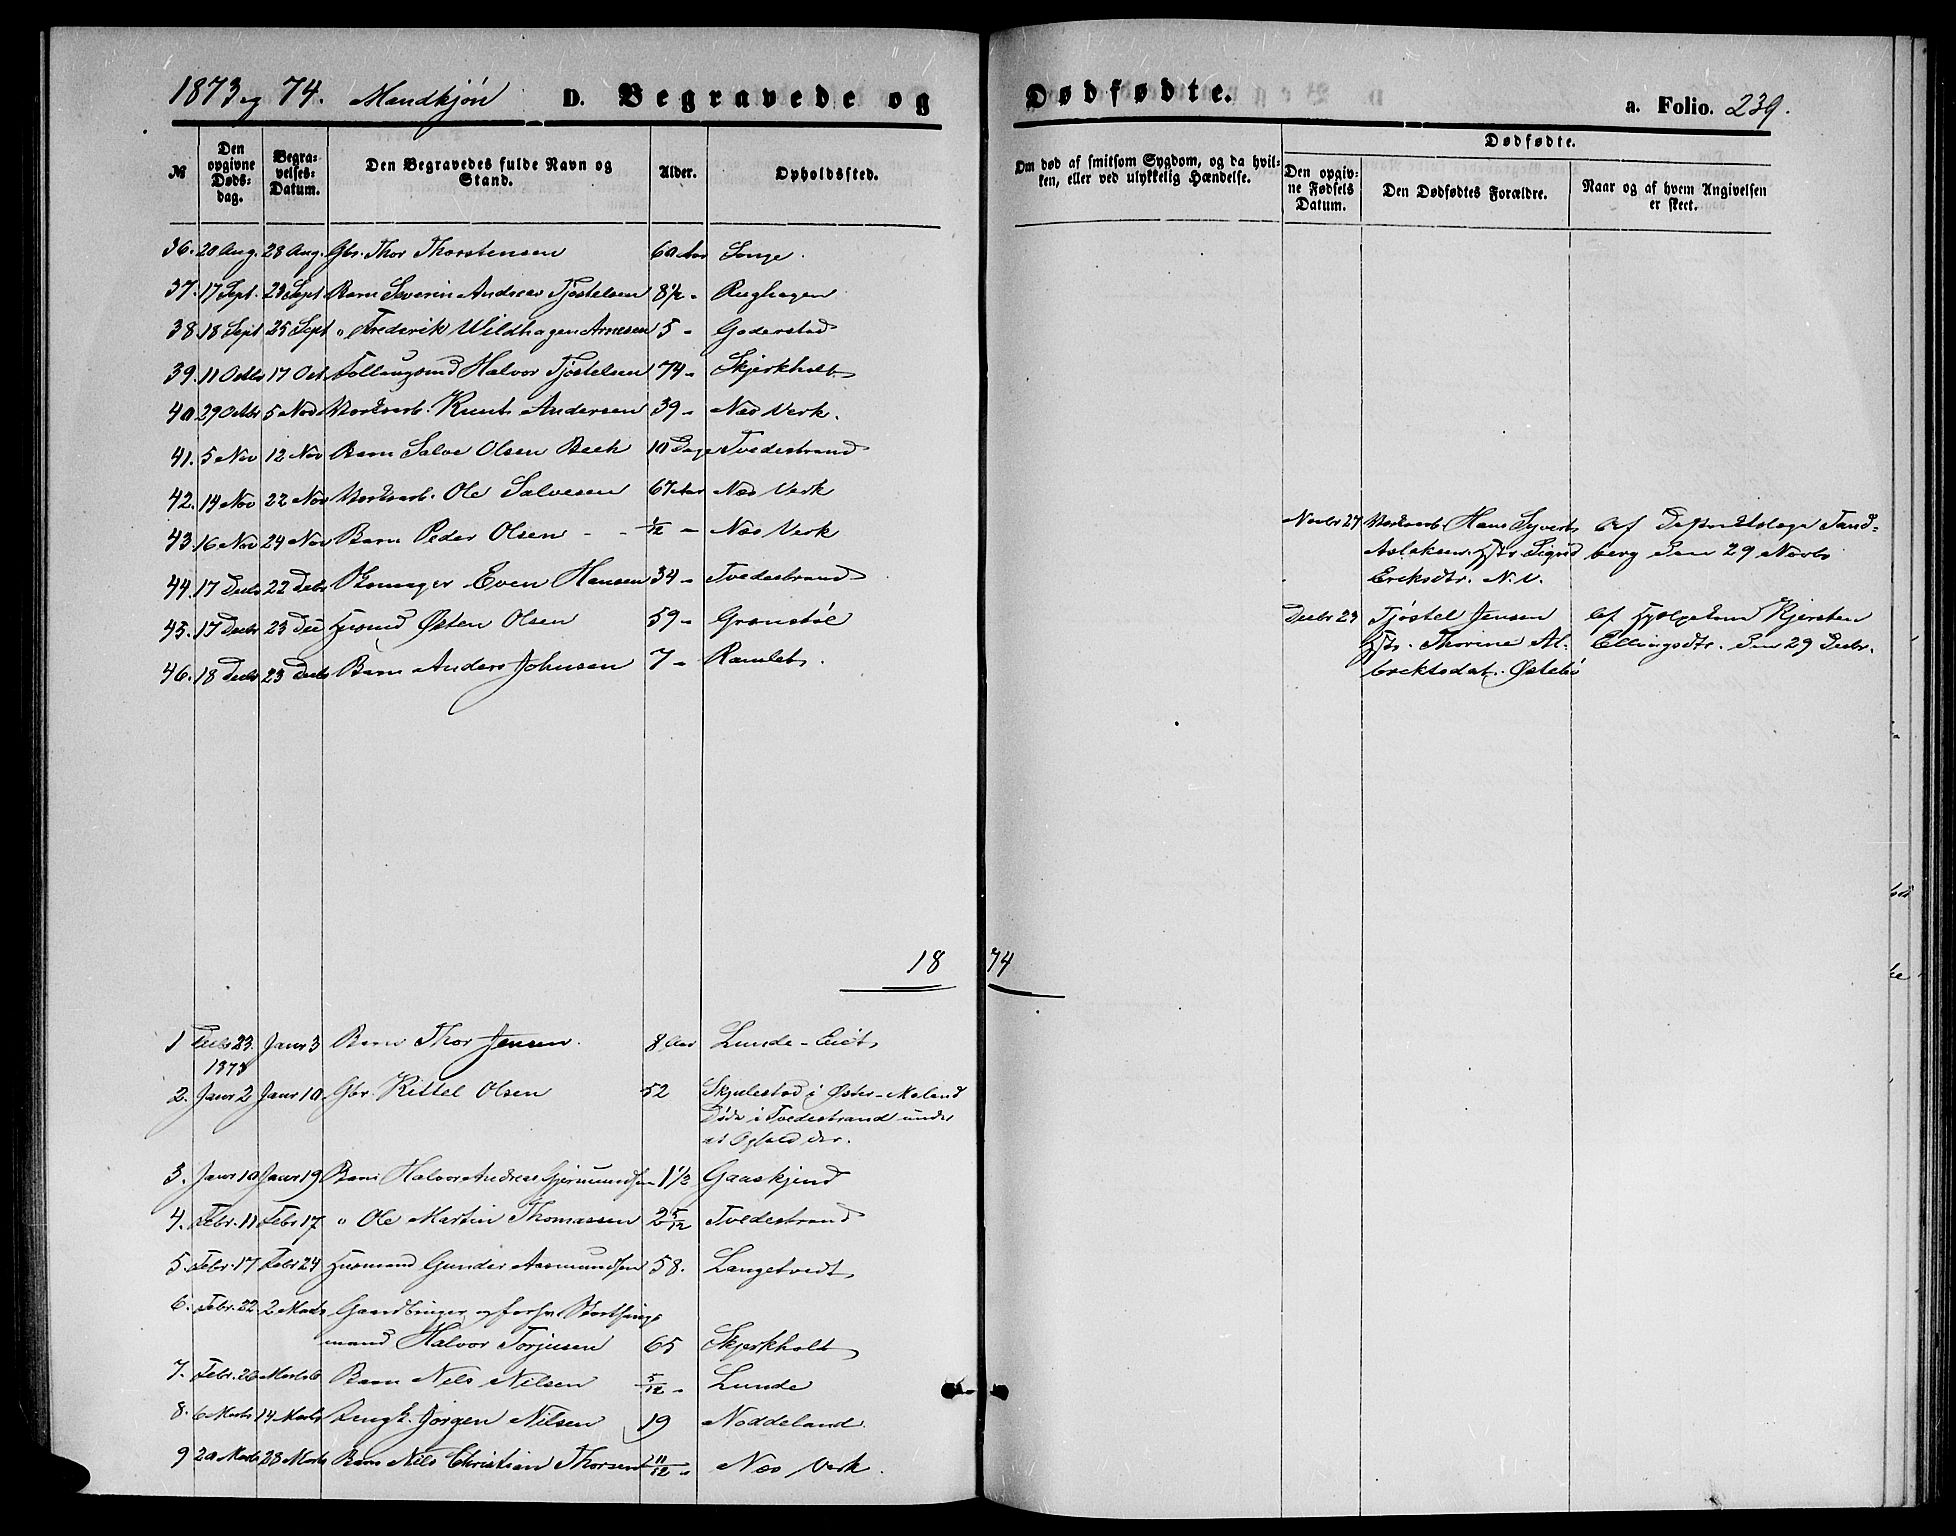 1873 og 74. Mandkjøn D. Begravede og Dødfødte. a. Folio. 239.
№ Den opgivne Døds-dag. Begra-velses-Datum. Den Begravedes fulde Navn og Stand. Alder. Opholdssted. Om død af smitsom Sygdom, og da hvil-ken, eller ved ulykkelig Hændelse. Dødfødte. Den opgiv-ne Fødsels Datum. Den Dødfødtes Forældre. Naar og af hvem Angivelsen er skeet.
36. 20 Aug. 28 Aug. Gbr. Thor Thorstensen 60 Aar Songe.
37. 17 Sept. 23 Sept Barn Severin Andreas Tjøstelsen 8 1/2 - Rughagen
38. 18 Sept 25 Sept " Frederik Wildhagen Arnesen 5 - Goderstad
39. 11 Octbr 17 Oct. Follaugsmd Halvor Tjøstelsen 74 - Skjerkholt
40 29 Octbr 5 Nov Værksarb. Knut Andersen 39 - Næs Verk.
41. 5 Nov 12 Nov Barn Salve Olsen Bech 10 Dage Tvedestrand
42. 14 Nov 22 Nov Værksarb. Ole Salvesen 67 Aar Næs Verk
43. 16 Nov 24 Nov Barn Peder Olsen - - 1/12 - Næs Verk
Novbr 27 Værksarb. Hans Syvert Af Distriktslæge Tand-
Aslaksen, Hstr. Sigrid berg den 29 Novbr
Ericksdtr. N.V.
44. 17 Decbr 22 Decbr Skomager Even Hansen 34 - Tvedestrand
45. 17 Decbr 23 Dec Husmd Østen Olsen 59 - Grønstøl
Decbr 23 Tjøstel Jensen Af Hjelpekone Kjersten
Hstr. Thorine Al- Ellingsdtr. den 29 Decbr.
brektsdat. Østebø
46. 18 Decbr 23 Decbr Barn Anders Johnsen 7 - Ramlet.
1874
1 Decbr 23. Janr 3 Barn Thor Jensen. 8 Aar Lunde-Eiet
1873
2. Janr 2 Janr 10. Gbr. Kittel Olsen 52 Skjulestad i Øster-Moland
Døde i Tvedestrand under
et Ophold der.
3. Janr 10 Janr 19 Barn Halvor Andreas Gjermundsen 1 1/2 Gaaskjend
4. Febr. 11 Febr 17 " Ole Martin Thomassen 2 5/12 Tvedestrand
5. Febr. 17 Febr 24 Husmand Gunder Aasmundsen 58. Langetvedt
6. Febr. 22. 2 Marts Gaardbruger og forhv. Storthings-
mand Halvor Torjusen 65 Skjerkholt
7. Febr. 26 Marts 6 Barn Nels Nilsen 5/12 - Lunde
8. 6 Marts 14 Marts Ungk. Jørgen Nilsen 19 Noddeland
9 20 Marts 28 Marts Barn Nils Christian Thorsen 11/12 - Næs Verk.